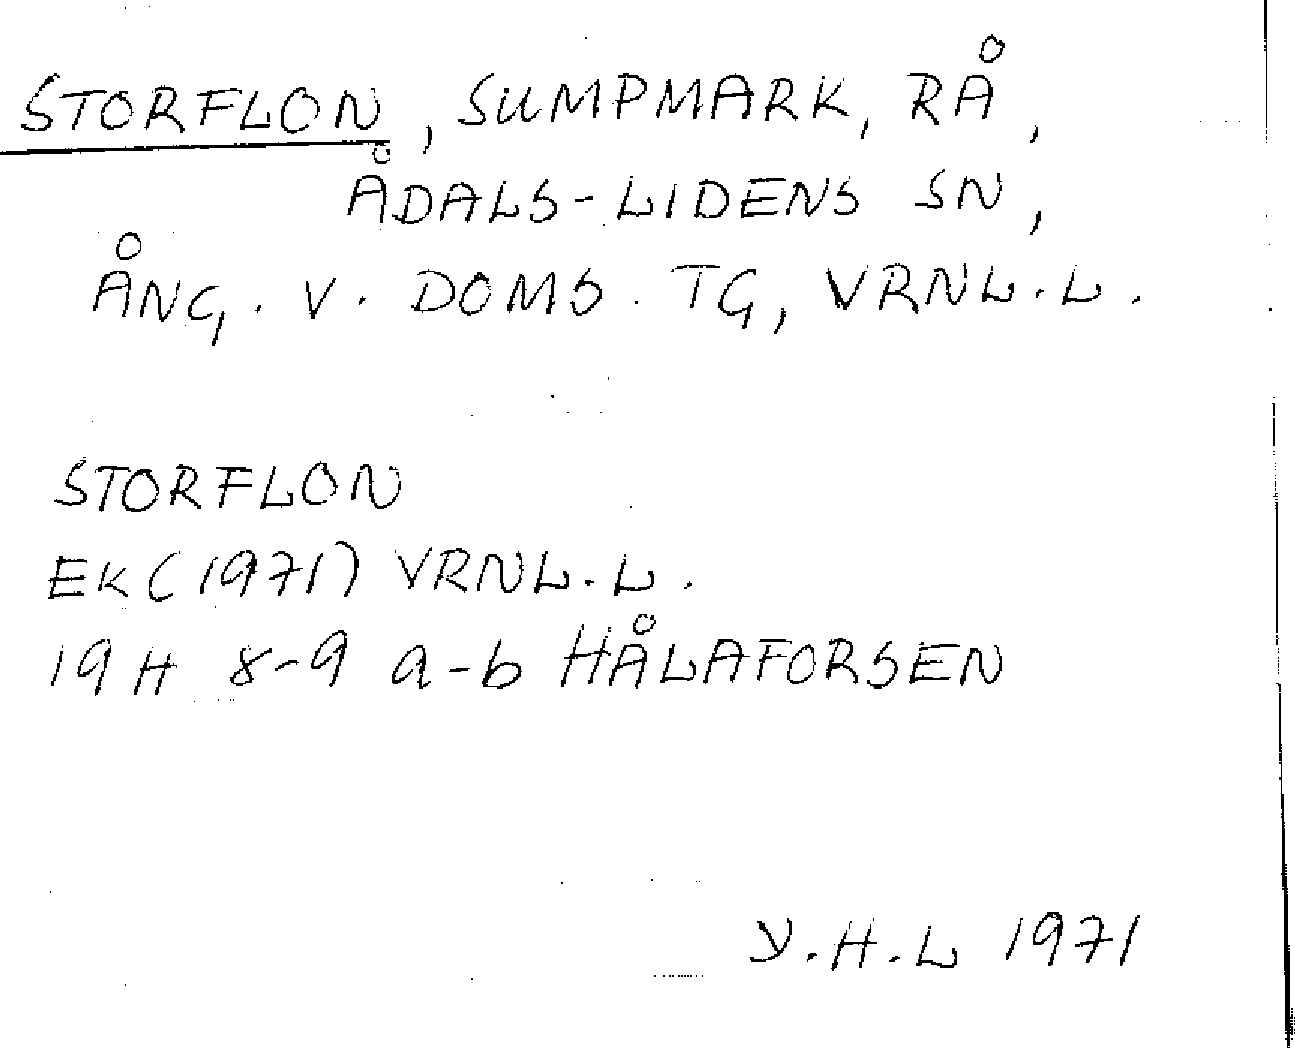 STORFLON, SUMPMARK, RÅ,
ÅDALS-LIDENS SN,
ÅNG. V. DOMS. TG, VRNL.L.
STORFLON
EK (1971) VRNL.L.
19 H 8-9 a-b HÅLAFORSEN
Y.H.L 1971